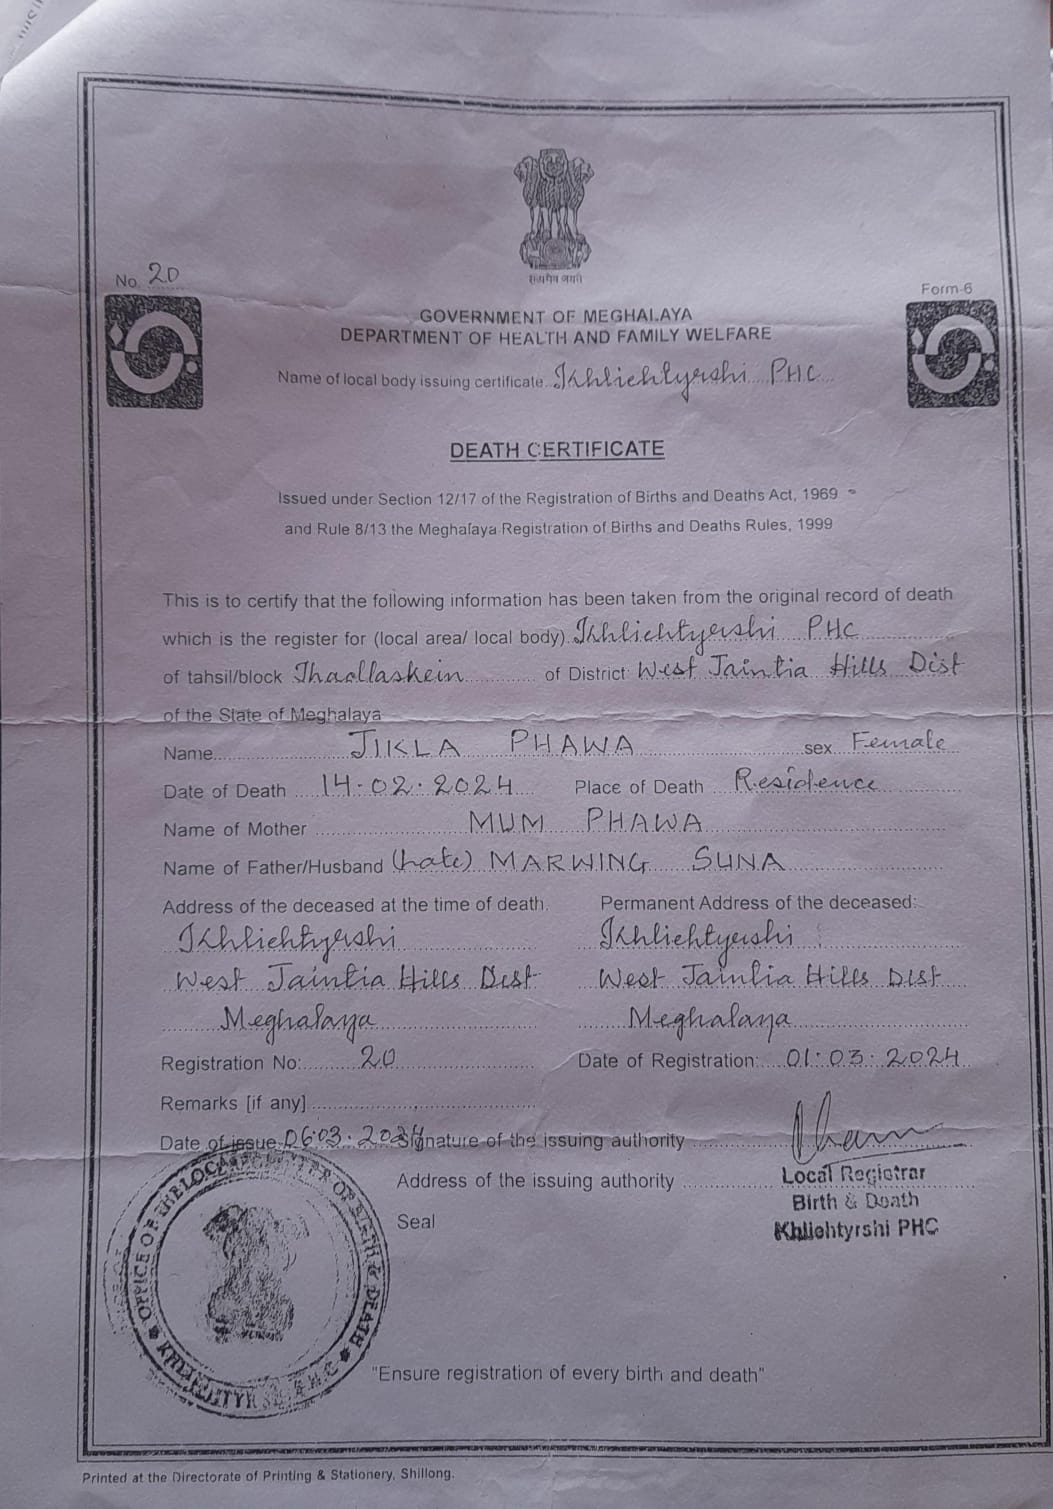 सत्यमेव जयते
No. 20
Form-6
GOVERNMENT OF MEGHALAYA
DEPARTMENT OF HEALTH AND FAMILY WELFARE
Name of local body issuing certificate Khliehtyrshi PHC
DEATH CERTIFICATE
Issued under Section 12/17 of the Registration of Births and Deaths Act, 1969
and Rule 8/13 the Meghalaya Registration of Births and Deaths Rules, 1999
This is to certify that the following information has been taken from the original record of death
which is the register for (local area/ local body) Khliehtyrshi PHC
of tahsil/block Thadlaskein of District: West Jaintia Hills Dist
of the State of Meghalaya
Name JIKLA PHAWA sex Female
Date of Death 14.02.2024 Place of Death Residence
Name of Mother MUM PHAWA
Name of Father/Husband (Late) MARWING SUNA
Address of the deceased at the time of death. Permanent Address of the deceased:
Khliehtyrshi Khliehtyrshi
West Jaintia Hills Dist West Jaintia Hills Dist
Meghalaya Meghalaya
Registration No: 20 Date of Registration: 01.03.2024
Remarks [if any]
Date of issue 06.03.2024 Signature of the issuing authority
Address of the issuing authority Local Registrar
Birth & Death
Seal Khliehtyrshi PHC
OFFICE OF THE LOCAL REGISTER OF BIRTH & DEATH
"Ensure registration of every birth and death"
Printed at the Directorate of Printing & Stationery, Shillong.